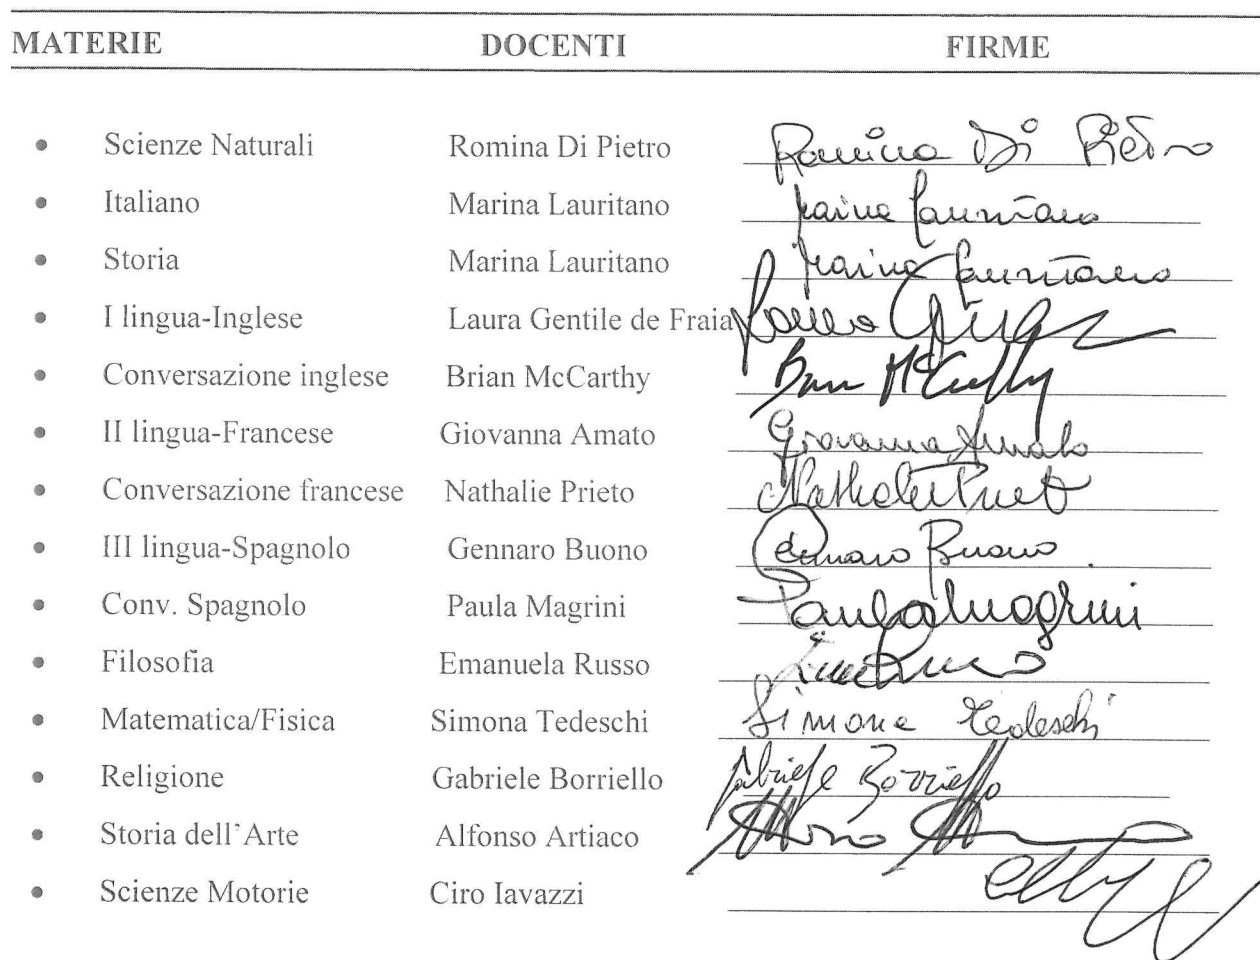 MATERIE DOCENTI FIRME
• Scienze Naturali Romina Di Pietro Romina Di Pietro
• Italiano Marina Lauritano Marina Lauritano
• Storia Marina Lauritano Marina Lauritano
• I lingua-Inglese Laura Gentile de Fraia Laura
• Conversazione inglese Brian McCarthy Brian McCarthy
• II lingua-Francese Giovanna Amato Giovanna Amato
• Conversazione francese Nathalie Prieto Nathalie Prieto
• III lingua-Spagnolo Gennaro Buono Gennaro Buono
• Conv. Spagnolo Paula Magrini Paula Magrini
• Filosofia Emanuela Russo
• Matematica/Fisica Simona Tedeschi Simona Tedeschi
• Religione Gabriele Borriello Gabriele Borriello
• Storia dell'Arte Alfonso Artiaco
• Scienze Motorie Ciro Iavazzi